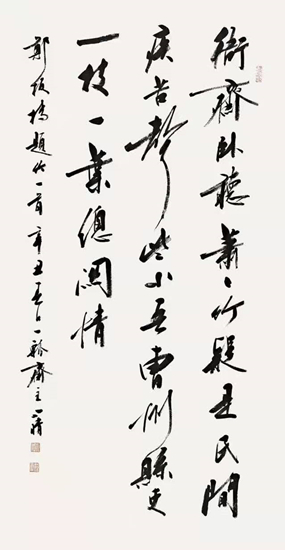 衙齋卧聽蕭〻竹疑是民間
疾苦聲些小吾曹州縣吏
一枝一葉總關情
鄭板橋題竹一首辛丑齋主